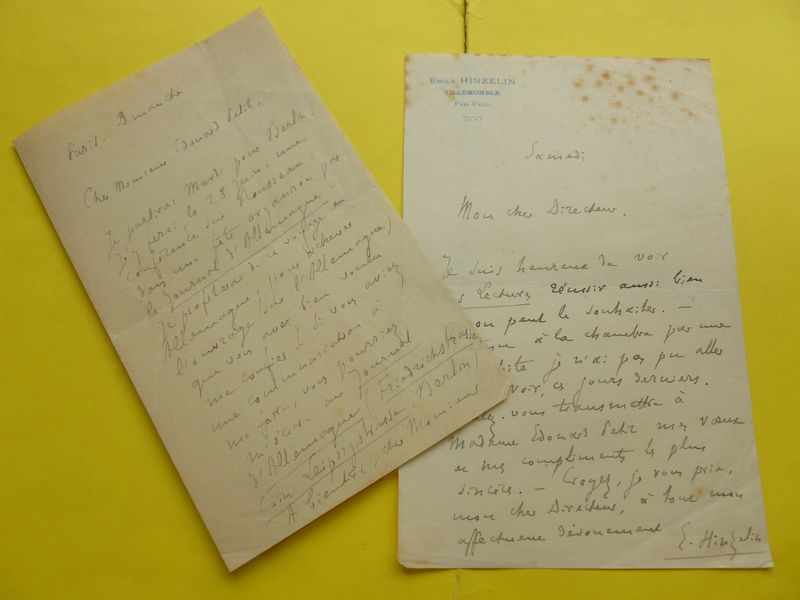 Paris. Dimanche
Cher Monsieur Edouard Petit,
Je partirai Mardi pour Berlin.
J'y ferai le 28 Juin, une
conférence sur Rousseau,
dans une fête organisée par
le Journal d'Allemagne.
Je profiterai de ce voyage en
Allemagne, pour achever
l'ouvrage sur l'Allemagne)
que vous avez bien voulu
me confier. Si vous aviez
une communication à
me faire, vous pourriez
m'écrire au Journal
d'Allemagne (Friedrichstrasse
Coin Leipzigstrasse Berlin)
A bientôt, cher Monsieur
EMILE HINZELIN
VILLEMOMBLE
PRÈS PARIS
Samedi
Mon cher Directeur.
Je suis heureux de voir
Lectures réussir aussi bien
on peut le souhaiter. —
à la chambre par une
je n'ai pas pu aller
voir, ces jours derniers.
vous transmettre à
Madame Edouard Petit mes vœux
et mes compliments les plus
sincères. — Croyez, je vous prie,
mon cher Directeur, à tout mon
affectueux dévouement
E. Hinzelin